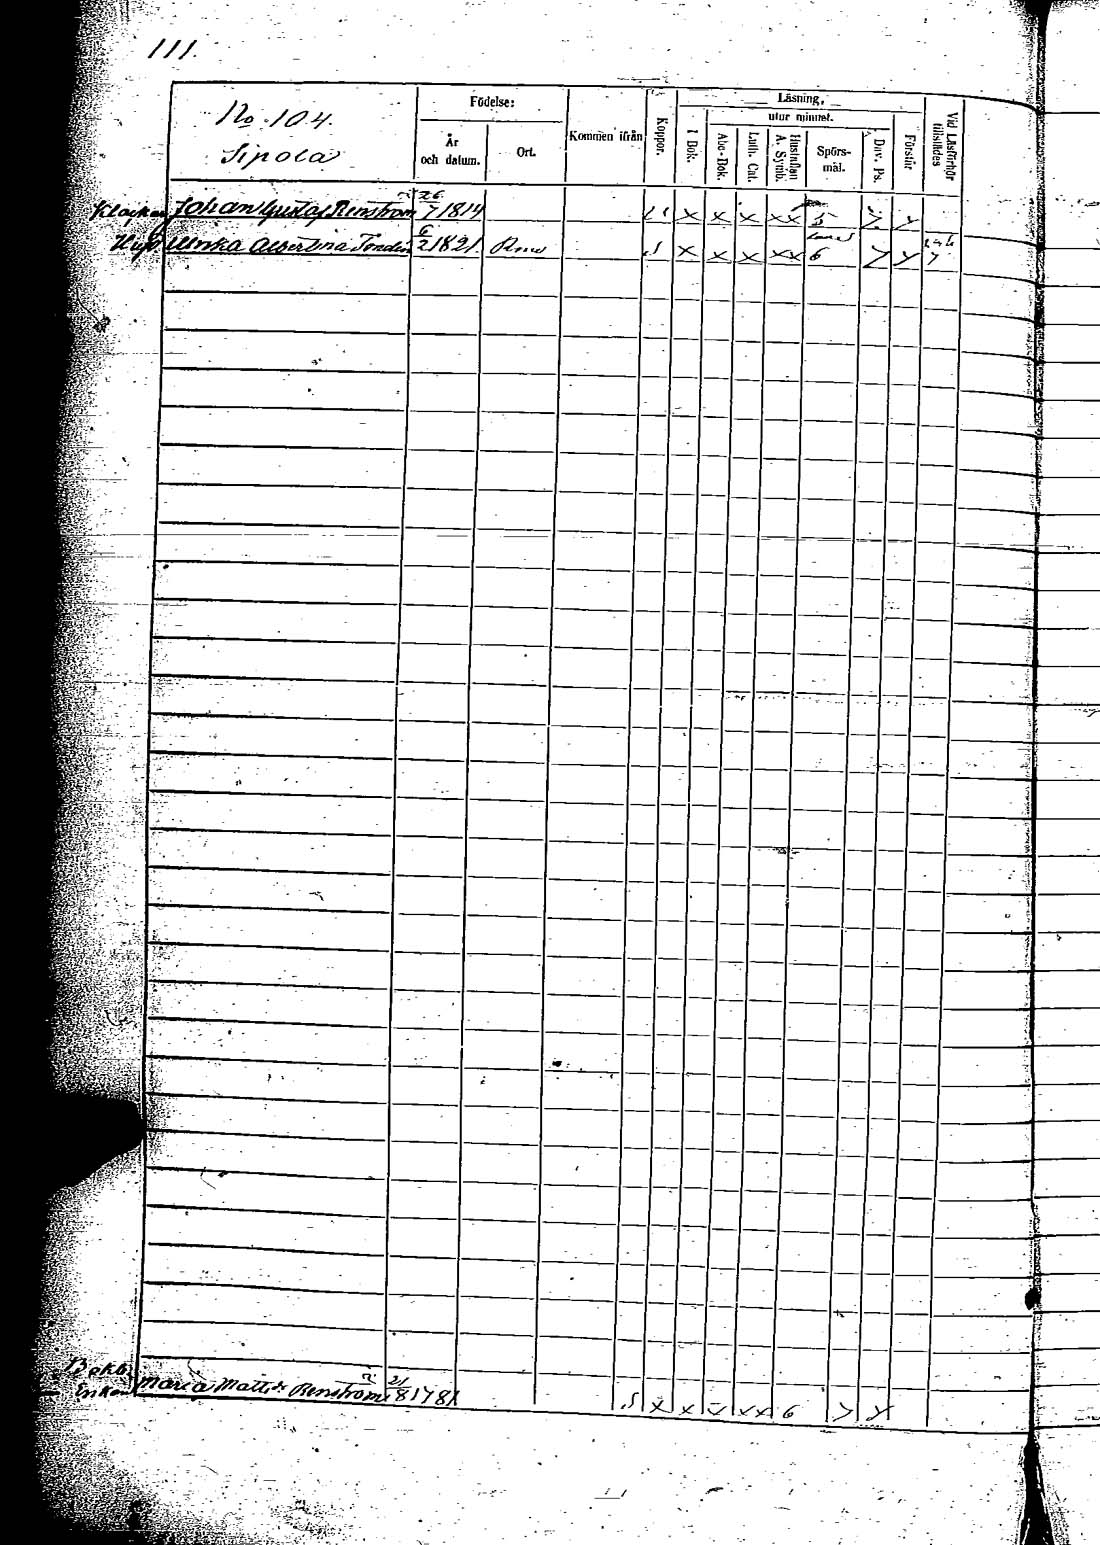 111.
No 104.
Sipola
Födelse:
År
och datum.
Ort.
Kommen ifrån
Koppor.
Läsning,
utur minnet.
I Bok.
Abc-Bok.
Luth. Cat.
Hustaflan
A. Symb.
Spörs-
mål.
Dav. Ps.
Förstår
Vid Läsförhör
tillstädes
Klockar Johan Gustaf Renström 26/7 1814 x x x xx 5
Hust Ulrika Albertina 6/2 1821. x x x xx 6
Enkan Maria Matts dr Renström 21/8 1781 x x x xx 6